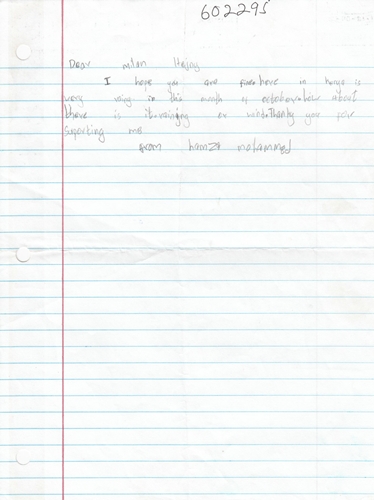 602295
Dear milan
I hope you are fine.here in kenya is
very rainy in this month of october.how about
there is it.raining or wind.thank you for
suporting me
from hamza mohammed